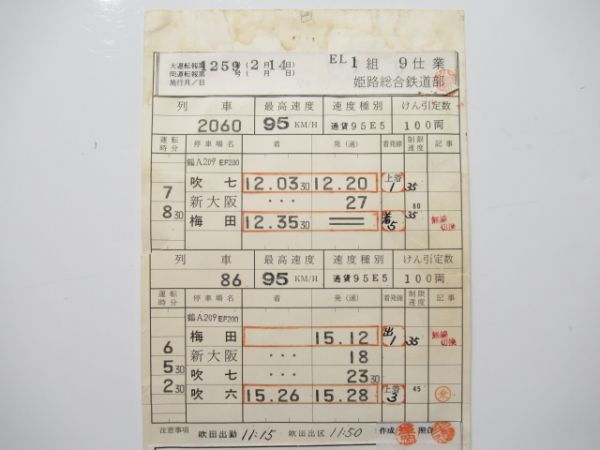 大運転報第 1259 号(2月14日) EL 1組 9仕業
岡運転報第 号( 月 日)
施行月/日 姫路総合鉄道部
列車 最高速度 速度種別 けん引定数
2060 95KM/H 通貨95E5 100両
運転時分 停車場名 着 発(通) 着発線 制限速度 記事
鶴A209 EF200
吹七 12.03 30 12.20 上着1 35
7 新大阪 ・・・ 27 80
8 30 梅田 12.35 30 着5 35 無線切換
列車 最高速度 速度種別 けん引定数
86 95KM/H 通貨95E5 100両
運転時分 停車場名 着 発(通) 着発線 制限速度 記事
鶴A209 EF200
梅田 15.12 出1 35 無線切換
6 新大阪 ・・・ 18
5 30 吹七 ・・・ 23 30
2 30 吹六 15.26 15.28 上着3 45
注意事項 吹田出勤 11:15 吹田出区 11:50 作成 照合